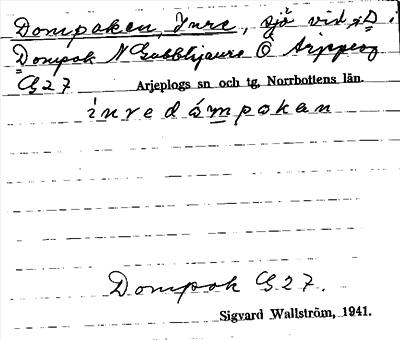 Dompoken, Inre, sjö vid D i
Dompok N Gabbtjaure Ö Arjeplog
G27 Arjeplogs sn och tg, Norrbottens län.
inredåmpokan
Dompok G 27.
Sigvard Wallström, 1941.